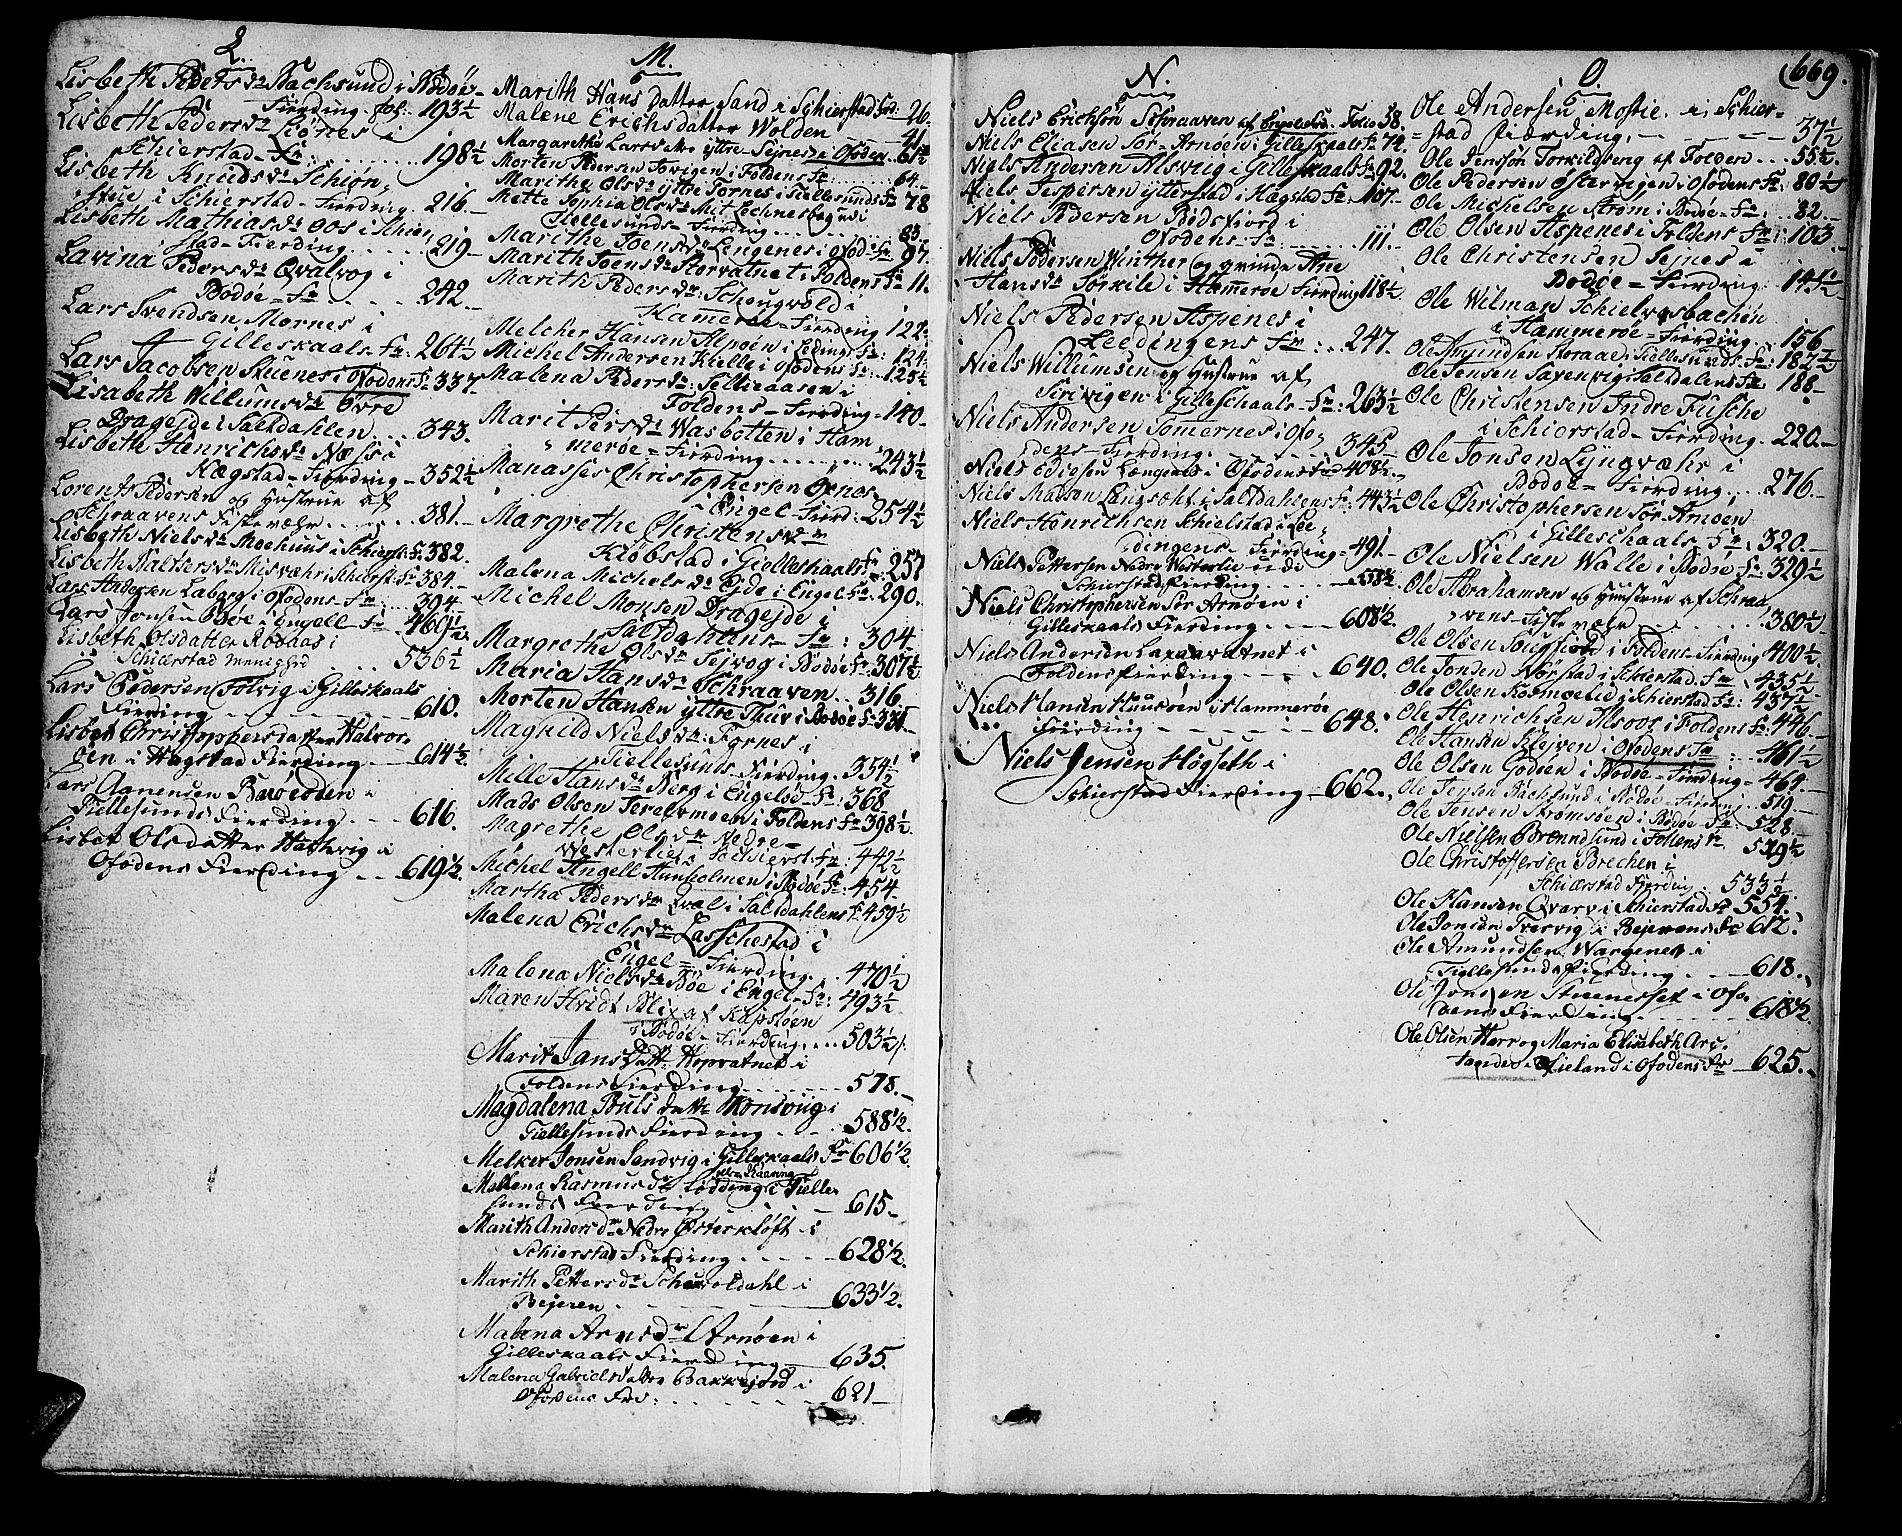 L.
Lisbeth Peders dr Nachsund i Bodøe
Fierding fol: 193½
Lisbeth Peders dr Lienes i
Schierstad Fr: 198½
Lisbeth Knuds dr Schiøn,
stue i Schierstad Fierding 216.
Lisbeth Mathias dr Oos i Schier,
stad Fierding 219
Lavina Peders dr Qvalvog i
Bodøe Fr 242
Lars Svendsen Mornes i
Gilleskaals Fr: 264½
Lars Jacobsen Skuenes i Ofodens Fr 337.
Lisabeth Willums dr Øvre
Dragejde i Saltdahlen 343.
Lisbeth Henrichs dr Næss i
Hægstad Fierding 352½
Lorents Pedersen og Hustrue af
Schraavens Fiskevæhr 381.
Lisbeth Niels dr Moehuus i Schierst: Fr 382.
Lisbeth Walters dr Misvæhr i Schierst Fr 384
Lars Andersen Laberg i Ofodens Fr 394
Lars Jonsen Bøe i Engell Fr 460½
Lisbeth Olsdatter Rødaas i
Schierstad Menighed 536½
Lars Pedersen Tolvig i Gilleskaals
Fierding 610.
Lisbet Christoppersdatter Halvor
øen i Hagstad Fierding 614½
Lars Aanensen Barøeodden i
Tiellesunds Fierding 616.
Lisbet Olsdatter Hartvig i
Ofodens Fierding 619½.
M.
Marith Hans datter Sand i Schierstad Fr: 26.
Malene Erichsdatter Wolden 41.
Margaretha Larsdatr yttre Sejnes i Ofoden 61½
Morten Pedersen Torvigen i Foldens Fr: 64.
Marithe Ols dr yttre Tornes i Tiellesunds Fr 78
Mette Sophia Ols dr Mit Lechnesbogen i
Tiellesunds Fierding 83.
Marithe Joens dr Lengenes i Ofod: Fr 97.
Marith Joens dr Storvatnet i Foldens Fr 11.
Marith Peders dr: Schougvold i
Hammerøe Fierding 122.
Melcher Hansen Alpøen i Lødings Fr: 124
Michel Andersen Kielle i Ofodens Fr: 125½
Malena Peders dr: Selkieaasen i
Foldens Fierding 140
Marit Pers dr Wasbotten i Ham
merøe Fierding 243½
Manasses Christophersen Øxnes
i Engel Fierd: 254½
Margrethe Christens dr
Kiøbstad i Gielleskaals Fr 257
Malena Michels dr Ejde i Engel Fr 290.
Michel Monsen Dragejde i
Saltdahlens Fr: 304.
Margrethe Ols dr Sejvog i Bodøe Fr 307½
Maria Hans dr Schraaven 316
Morten Hansen yttre Thuv i Bodøe Fr 335
Magnild Niels dr: Fornes i
Tiellesunds Fierding 354½
Mille Hans dr Berg i Engeløe Fr 368
Mads Olsen Terelvmoen i Foldens Fr 398½
Magrethe Ols dr Nedre
Westerlie i Schierst: Fr: 442½
Michel Angell Hunholmen i Bodøe Fr 454
Martha Peders dr Qval i Saltdahlens Fr 459½
Malena Erichs dr Lasschestad i
Engel Fierding 470½
Malena Niels dr Bøe i Engel Fr: 493½
Maren Hvidt Blix af Kapsløen
i Bodøe Fierding 503½
Marit Jans datt: Hopvatnet i
Foldens Fierding 578.
Magdalena Pouls datr Monsviig i
Tiellesunds Fierding 588½.
Melker Jonsen Sandvig i Gilleskaals Fr 606½
Malena Rasmus dr Lødding i Tielle
sunds Fierding 615
Marith Anders dr Nedre Østerkløft i
Schierstad Fierding 628½.
Marith Petters dr Schevoldahl i
Bejeren 633½.
Malena Arns dr Arnøen i
Gilleskaals Fierding 635.
Malena Gabrielsdatter Bakkejord i
Ofodens Frd: 621
N.
Niels Erichsøn Schraaven af Engeløe Folio 58.
Niels Eliasen Sør-Arnøen i Gilleskaals Fr 74.
Niels Andersen Alsviig i Gilleskaals Fr 92.
Niels Jespersen Ytterstad i Hægstad Fr: 107.
Niels Pedersen Bødsfiord i
Ofodens Fr 111.
Niels Pedersen Winther og qvinde Ane
Hans dr Torkile i Hammerøe Fierding 118½.
Niels Pedersen Aspenes i
Leedingens Fr: 247.
Niels Willumsen og Hustrue af
Forvigen i Gilleschaals Fr: 263½
Niels Andersen Tommernes i Ofo,
dens Fierding 345
Niels Ediasen Længenes i Ofodens Fr 408½.
Niels Madsen Langsæht i Saltdahlens Fr: 443½
Niels Henrichsen Schielstad i Lee,
dingens Fierding 491.
Niels Pettersen Nedre Westerlie inde
Schierstad Fierding 558½.
Niels Christophersen Sør Arnøen i
Gilleskaals Fierding 608½.
Niels Andersen Laxaavatnet i
Foldens Fierding 640.
Niels Hansen Huusøen i Hammerøe
Fierding 648.
Niels Jensen Høgseth i
Schierstad Fierding 662.
O.
669.
Ole Andersen Mostie i Schier
stad Fierding 37½
Ole Jensøn Torkildseng af Folden 55½.
Ole Pedersen Østervigen i Ofodens Fr 80½
Ole Michelsen Strøm i Bodøe Fr: 82.
Ole Olsen Aspenes i Foldens Fr: 103
Ole Christensen Sejnes i
Bodøe Fierding: 141½
Ole Wilman Schielvesbachen
i Hammerøe Fierding 156
Ole Amundsen Horaae i Tiellesunds Fr: 182½
Ole Jensen Saxenvig i Saltdalens Fr 188
Ole Christensen Indre Fusche
i Schierstad Fierding 220.
Ole Jonsen Lyngvæhr i
Bodøe Fierding 276.
Ole Christophersen Sør Arnøen
i Gilleschaals Fr: 320.
Ole Nielsen Walle i Bodøe Fr 329½
Ole Abrahamsen og Hustrue af Schraa
vens Fiskevæhr 380½
Ole Olsen Sougfiord i Foldens Fierding 400½.
Ole Jonsen Nørstad i Schierstad Fr: 435½
Ole Olsen Kosmoelie i Schierstad Fr: 437½
Ole Henrichsen Alsoos i Foldens Fr 446
Ole Hansen Klejven i Ofodens Fr 461½
Ole Olsen Godøen i Bodøe Fierding 469.
Ole Jensen Richsund i Bodøe Fierding 519
Ole Jensen Strømsøen i Bodøe Fr 528
Ole Nielsen Brenndsund i Foldens Fr 529½
Ole Christoffersen Brechen i
Schierstad Fierding 533½
Ole Hansen Qvarv i Schierstad Fr 554.
Ole Jonsøn Tverviig i Bejerens Fr 612.
Ole Amundsen Wargenes i
Tiellesunds Fierding 618.
Ole Jonsen Stuenesset i Ofo,
dens Fierding 618½
Ole Olsen Harr og Maria Elisabeth Arc,
tandes i Lieland i Ofodens Fr 625.